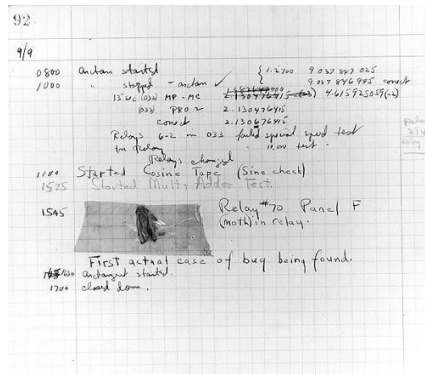 92
9/9
0800 Antan started
1000 " stopped - antan ✓ { 1.2700 9.037 847 025
9.037 846 995 correct
13"uc (032) MP-MC 4.615925059(-2)
(033) PRO 2 2.130476415
correct 2.130676415
Relays 6-2 in 033 failed special speed test
in relay " 10.000 test.
Relays changed
1100 Started Cosine Tape (Sine check)
1525 Started Mult+Adder Test.
1545 Relay #70 Panel F
(moth) in relay.
First actual case of bug being found.
1630 antangent started.
1700 closed down.